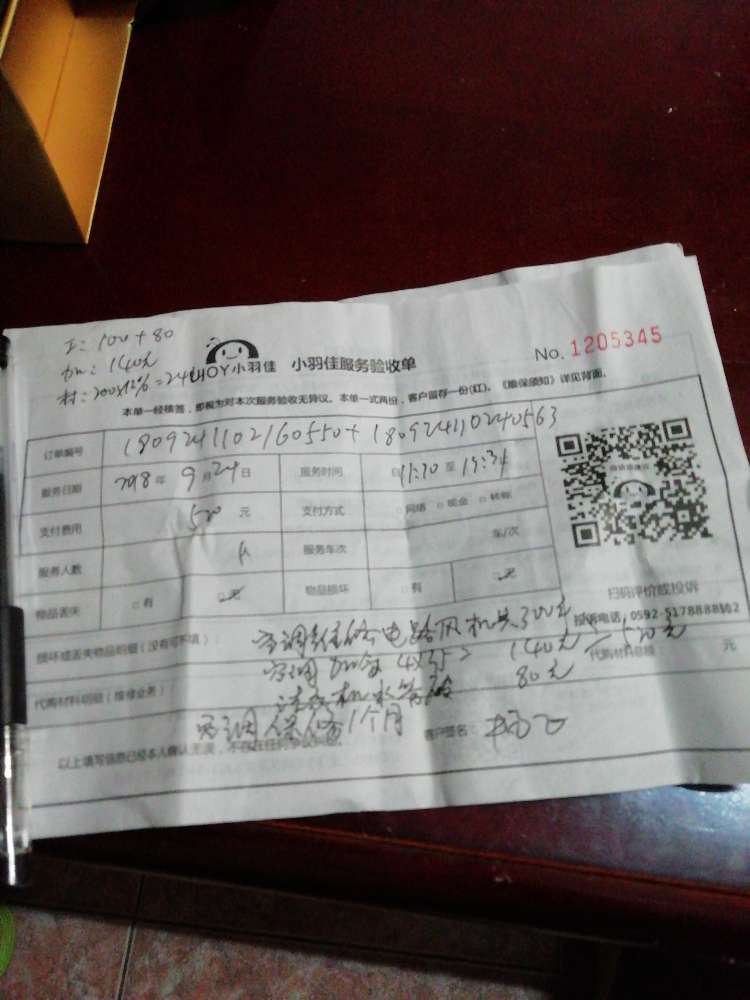 工: 100+80
加: 140元
材: 200×12%=24
IHOY小羽佳 小羽佳服务验收单 No. 1205345
本单一经核签，即视为对本次服务验收无异议。本单一式两份，客户留存一份(红)。《维保须知》详见背面。
订单编号 1809241102160550+180924110240563
服务日期 2018年9月24日 服务时间 自11:30至13:34
支付费用 520元 支付方式 □网络 □现金 □转账
服务人数 人 服务车次 车/次
物品丢失 □有 □无 物品损坏 □有 □无
扫码评价或投诉
投诉电话: 0592-5178888转102
损坏或丢失物品明细(没有可不填):
空调维修电路风机共300元
代购材料明细(维修业务):
空调加氟4×35 140元 =520元
代购材料总额: 元
80元
空调保修1个月
以上填写信息已经本人确认无误，不存在任何争议纠纷。 客户签名: